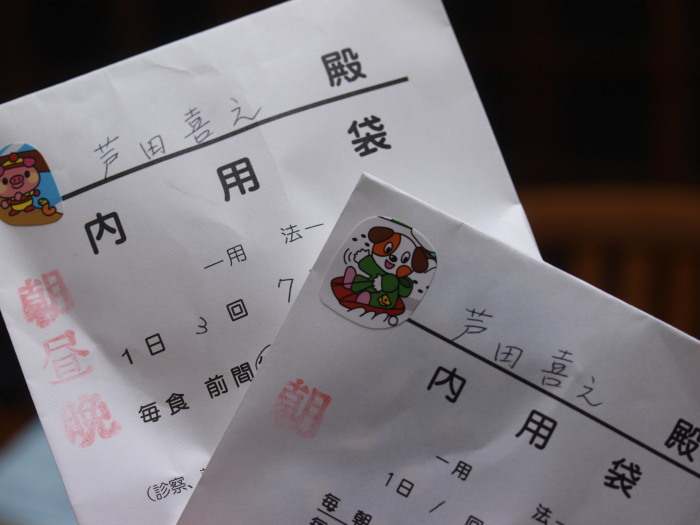 芦田喜え 殿
内用袋
一用 法一
1日 3 回 7
毎食 前間
(診察、
朝
昼
晩
芦田喜え 殿
内用袋
一用 法一
1日 / 回
毎 朝
毎
朝